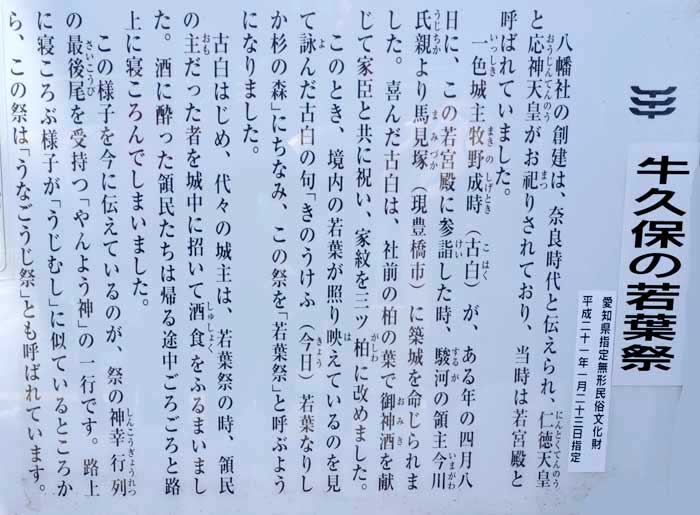 牛久保の若葉祭
愛知県指定無形民俗文化財
平成二十一年一月二十三日指定
八幡社の創建は、奈良時代と伝えられ、仁徳天皇
と応神天皇がお祀りされており、当時は若宮殿と
呼ばれていました。
一色城主牧野成時（古白）が、ある年の四月八
日に、この若宮殿に参詣した時、駿河の領主今川
氏親より馬見塚（現豊橋市）に築城を命じられま
した。喜んだ古白は、社前の柏の葉で御神酒を献
じて家臣と共に祝い、家紋を三ツ柏に改めました。
このとき、境内の若葉が照り映えているのを見
て詠んだ古白の句「きのうけふ（今日）若葉なりし
か杉の森」にちなみ、この祭を「若葉祭」と呼ぶよう
になりました。
古白はじめ、代々の城主は、若葉祭の時、領民
の主だった者を城中に招いて酒食をふるまいまし
た。酒に酔った領民たちは帰る途中ごろごろと路
上に寝ころんでしまいました。
この様子を今に伝えているのが、祭の神幸行列
の最後尾を受持つ「やんよう神」の一行です。路上
に寝ころぶ様子が「うじむし」に似ているところか
ら、この祭は「うなごうじ祭」とも呼ばれています。